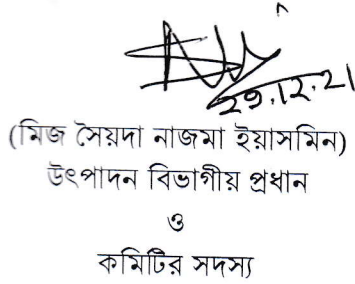 ২৯.১২.২১
(মিজ সৈয়দা নাজমা ইয়াসমিন)
উৎপাদন বিভাগীয় প্রধান
ও
কমিটির সদস্য